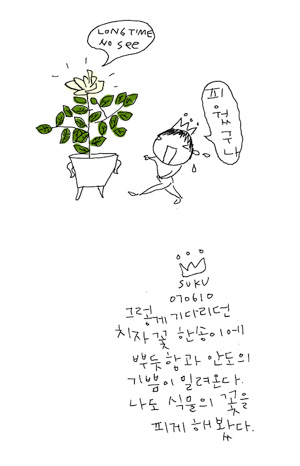 LONG TIME
NO SEE
피
웠
구
나
SUKU
070610
그렇게 기다리던
치자꽃 한송이에
뿌듯함과 안도의
기쁨이 밀려온다.
나도 식물의 꽃을
피게 해 봤다.